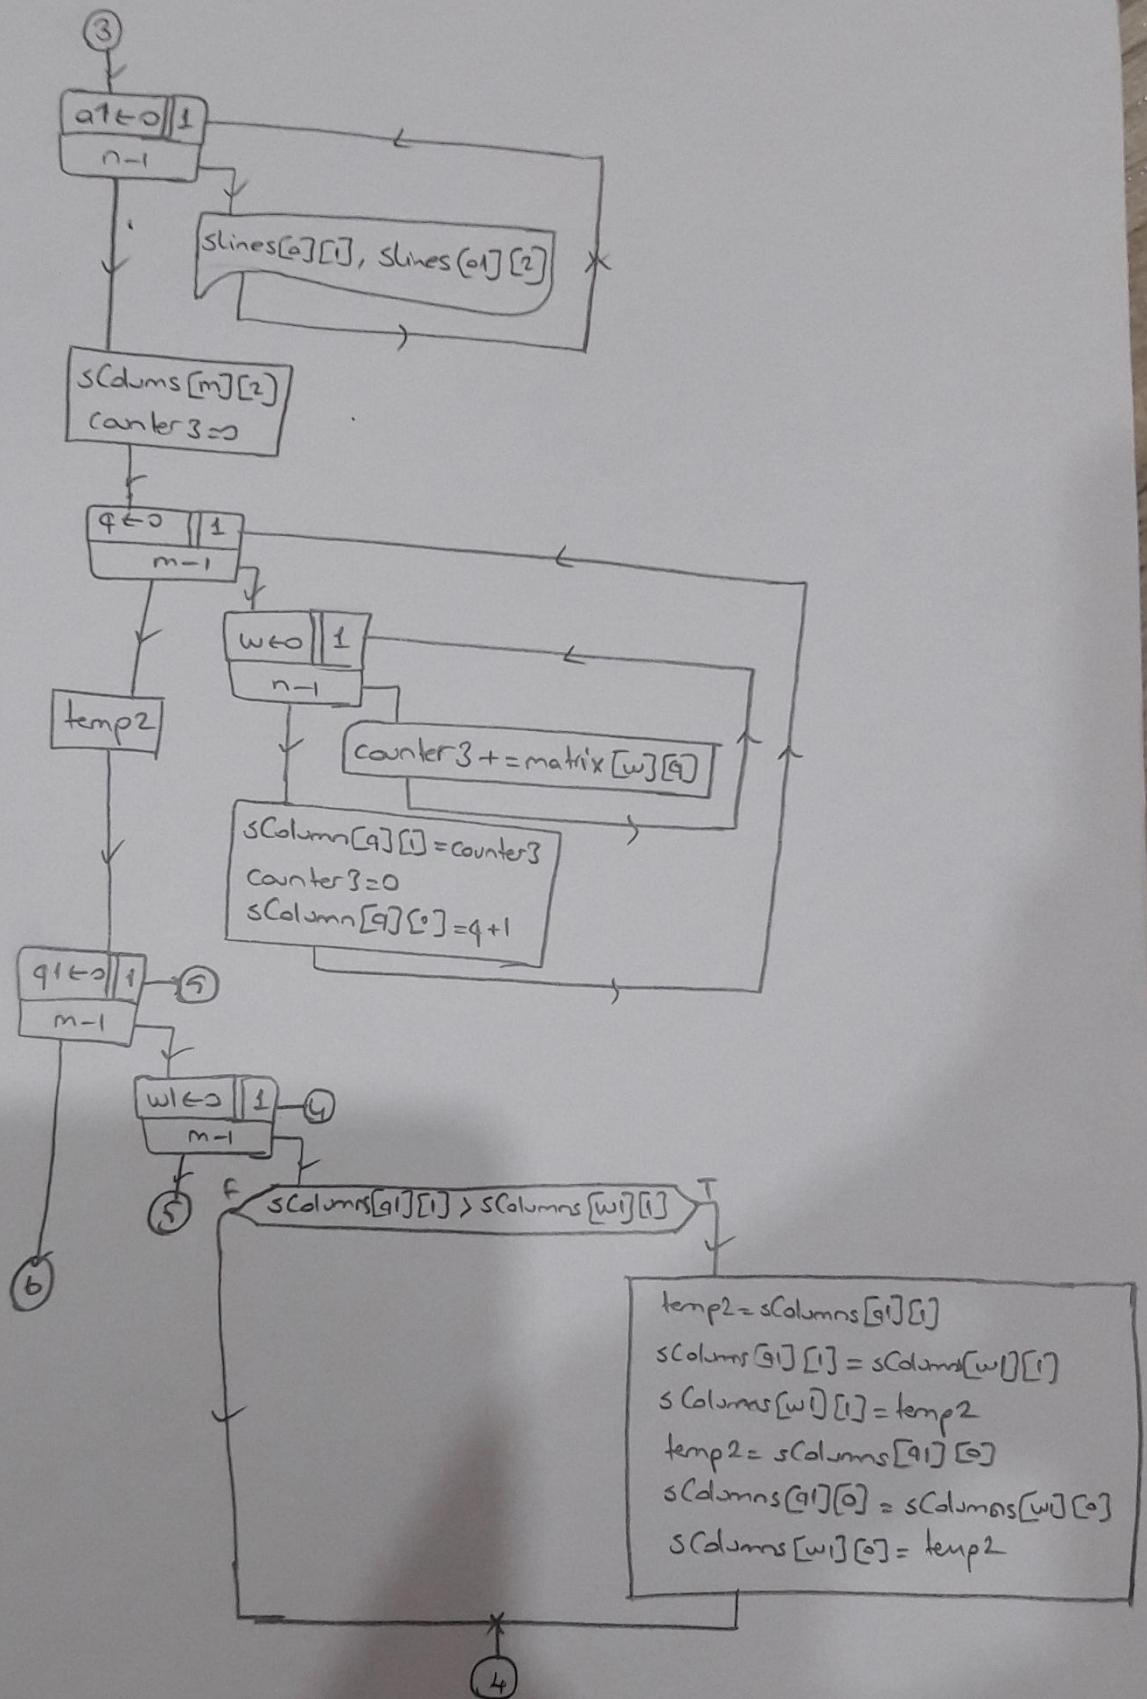 3
a1←0 1
n-1
slines[a][1], slines[a1][2]
sColums[m][2]
counter3=0
q←0 1
m-1
w←0 1
n-1
temp2
counter3+=matrix[w][q]
sColumn[q][1]=counter3
counter3=0
sColumn[q][0]=q+1
q1←0 1 5
m-1
w1←0 1 4
m-1
5
F sColumns[q1][1]>sColumns[w1][1] T
6
temp2=sColumns[q1][1]
sColumns[q1][1]=sColumns[w1][1]
sColumns[w1][1]=temp2
temp2=sColumns[q1][0]
sColumns[q1][0]=sColumns[w1][0]
sColumns[w1][0]=temp2
4